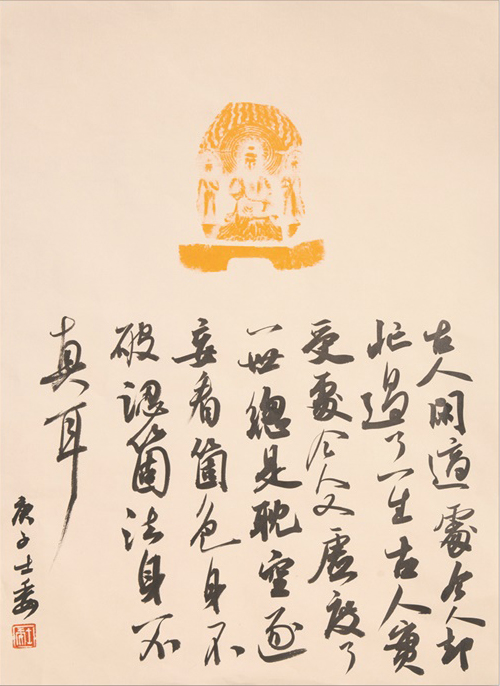 古人閑適處今人却
忙過了一生古人實
受處今人又虛度了
一世總是耽空逐
妄看箇色身不
破認箇法身不
真耳
庚子士